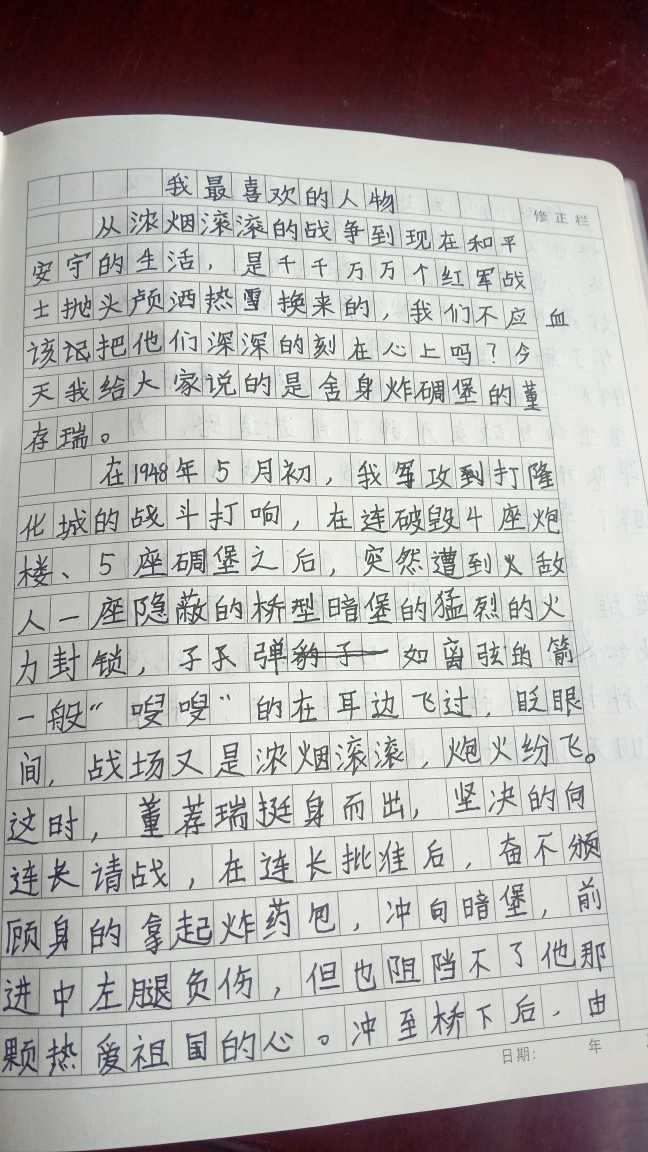 我最喜欢的人物
修正栏
从浓烟滚滚的战争到现在和平
安宁的生活，是千千万万个红军战
士抛头颅洒热雪换来的，我们不应 血
该记把他们深深的刻在心上吗？今
天我给大家说的是舍身炸碉堡的董
存瑞。
在1948年5月初，我军攻到打隆
化城的战斗打响，在连破毁4座炮
楼、5座碉堡之后，突然遭到火敌
人一座隐蔽的桥型暗堡的猛烈的火
力封锁，子弹豹子如离弦的箭
一般“嗖嗖”的在耳边飞过，眨眼
间，战场又是浓烟滚滚，炮火纷飞。
这时，董荐瑞挺身而出，坚决的向
连长请战，在连长批准后，奋不颁
顾身的拿起炸药包，冲向暗堡，前
进中左腿负伤，但也阻挡不了他那
颗热爱祖国的心。冲至桥下后，由
日期： 年